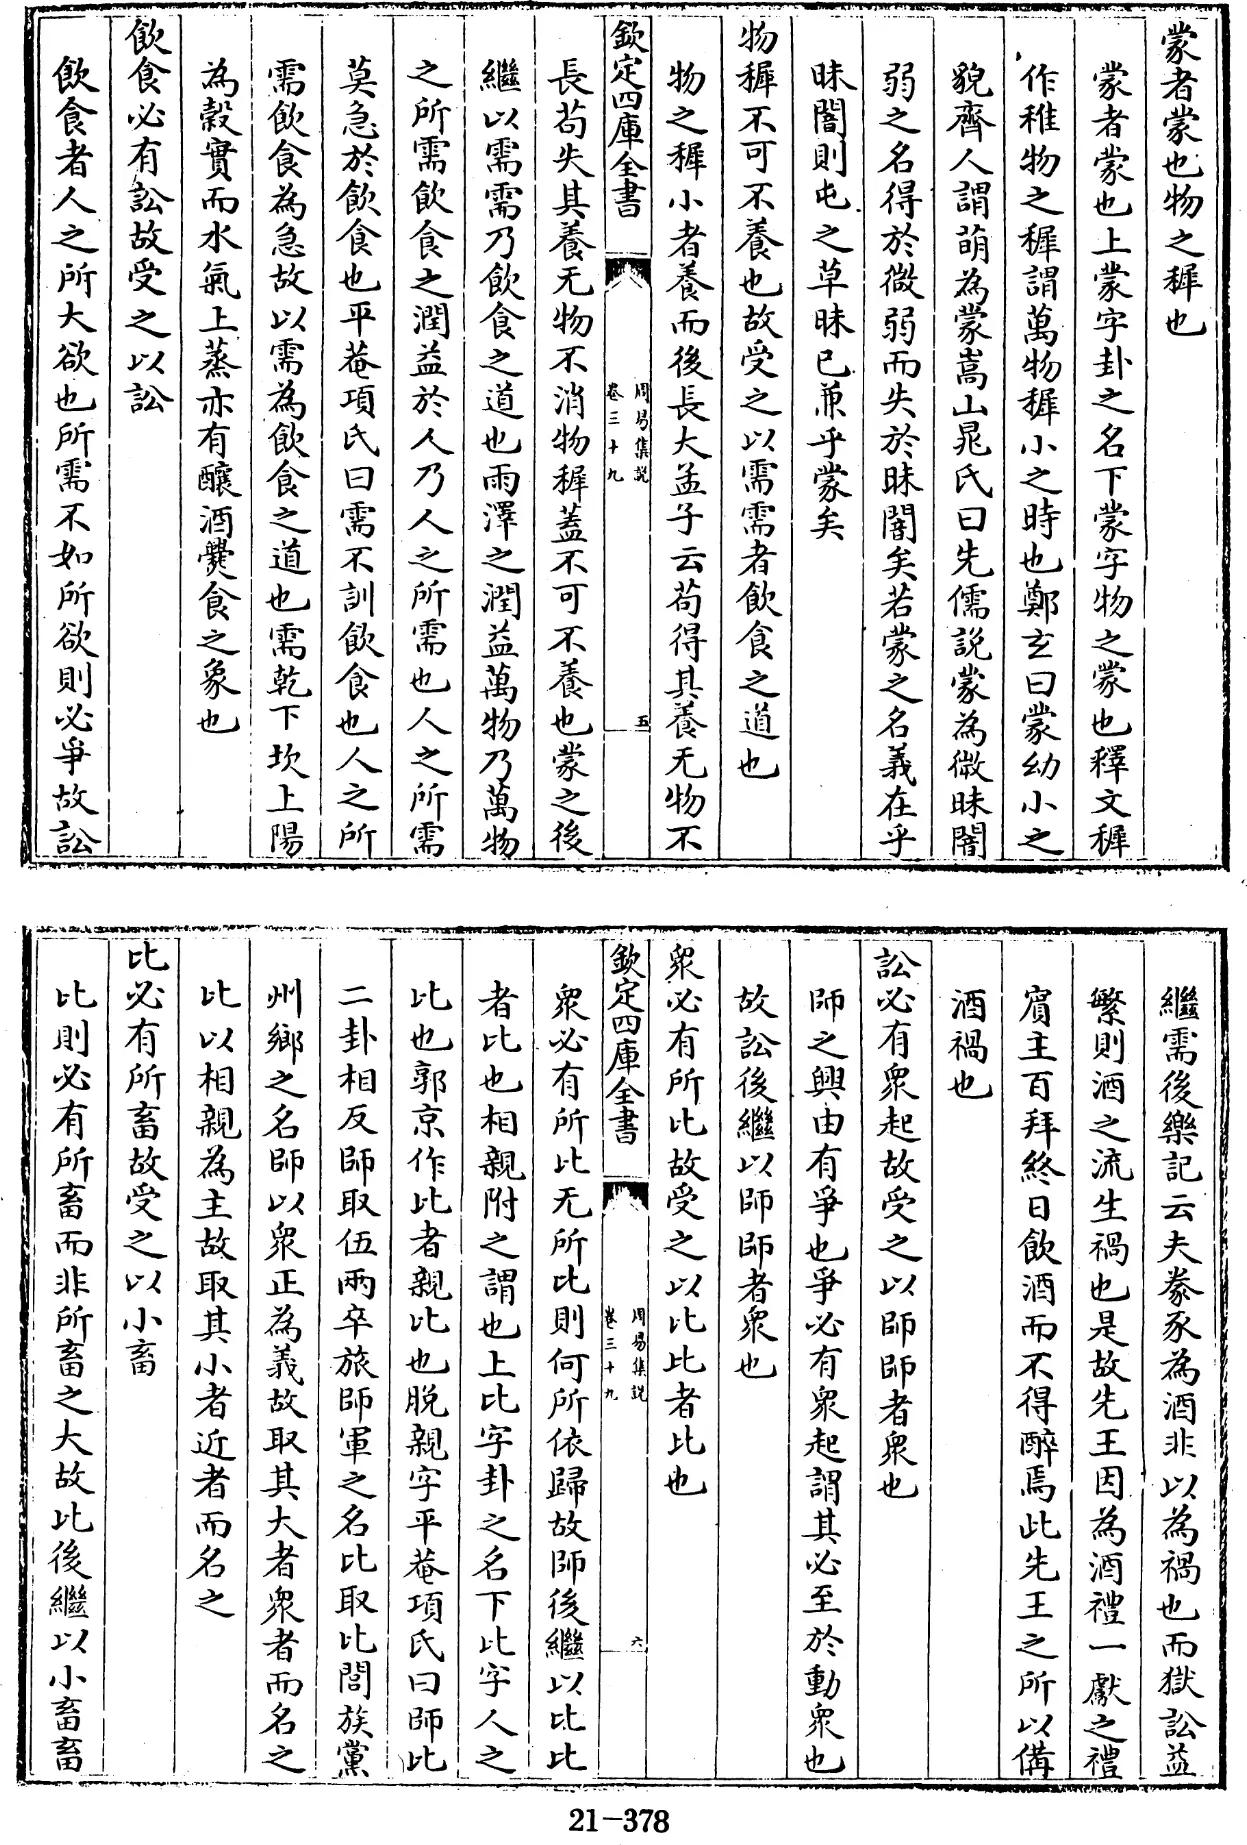 蒙者蒙也物之穉也
蒙者蒙也上蒙字卦之名下蒙字物之蒙也釋文穉
作稚物之穉謂萬物穉小之時也鄭玄曰蒙幼小之
貌齊人謂萌為蒙嵩山晁氏曰先儒説蒙為微昧闇
弱之名得於微弱而失於昧闇矣若蒙之名義在乎
昧闇則屯之草昧已兼乎蒙矣
物穉不可不養也故受之以需需者飲食之道也
物之穉小者養而後長大孟子云茍得其養无物不
欽定四庫全書
周易集説
卷三十九
五
長茍失其養无物不消物穉蓋不可不養也蒙之後
繼以需需乃飲食之道也雨澤之潤益萬物乃萬物
之所需飲食之潤益於人乃人之所需也人之所需
莫急於飲食也平菴項氏曰需不訓飲食也人之所
需飲食為急故以需為飲食之道也需乾下坎上陽
為穀實而水氣上蒸亦有釀酒爨食之象也
飲食必有訟故受之以訟
飲食者人之所大欲也所需不如所欲則必爭故訟
繼需後樂記云夫豢豕為酒非以為禍也而獄訟益
繁則酒之流生禍也是故先王因為酒禮一獻之禮
賔主百拜終日飲酒而不得醉焉此先王之所以備
酒禍也
訟必有衆起故受之以師師者衆也
師之興由有爭也爭必有衆起謂其必至於動衆也
故訟後繼以師師者衆也
衆必有所比故受之以比比者比也
欽定四庫全書
周易集説
卷三十九
六
衆必有所比无所比則何所依歸故師後繼以比比
者比也相親附之謂也上比字卦之名下比字人之
比也郭京作比者親比也脱親字平菴項氏曰師比
二卦相反師取伍兩卒旅師軍之名比取比閭族黨
州鄉之名師以衆正為義故取其大者衆者而名之
比以相親為主故取其小者近者而名之
比必有所畜故受之以小畜
比則必有所畜而非所畜之大故比後繼以小畜畜
21-378